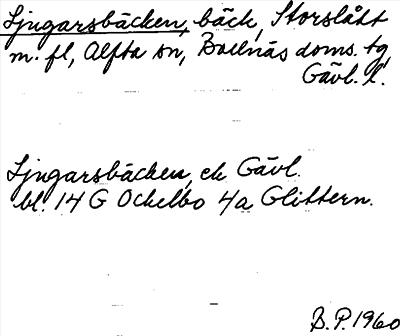 Ljugarsbäcken, bäck, Storslått
m. fl, Alfta sn, Bollnäs doms. tg,
Gävl. l.
Ljugarsbäcken, ek Gävl.
bl. 14 G Ockelbo 4a Glittern.
B.P. 1960